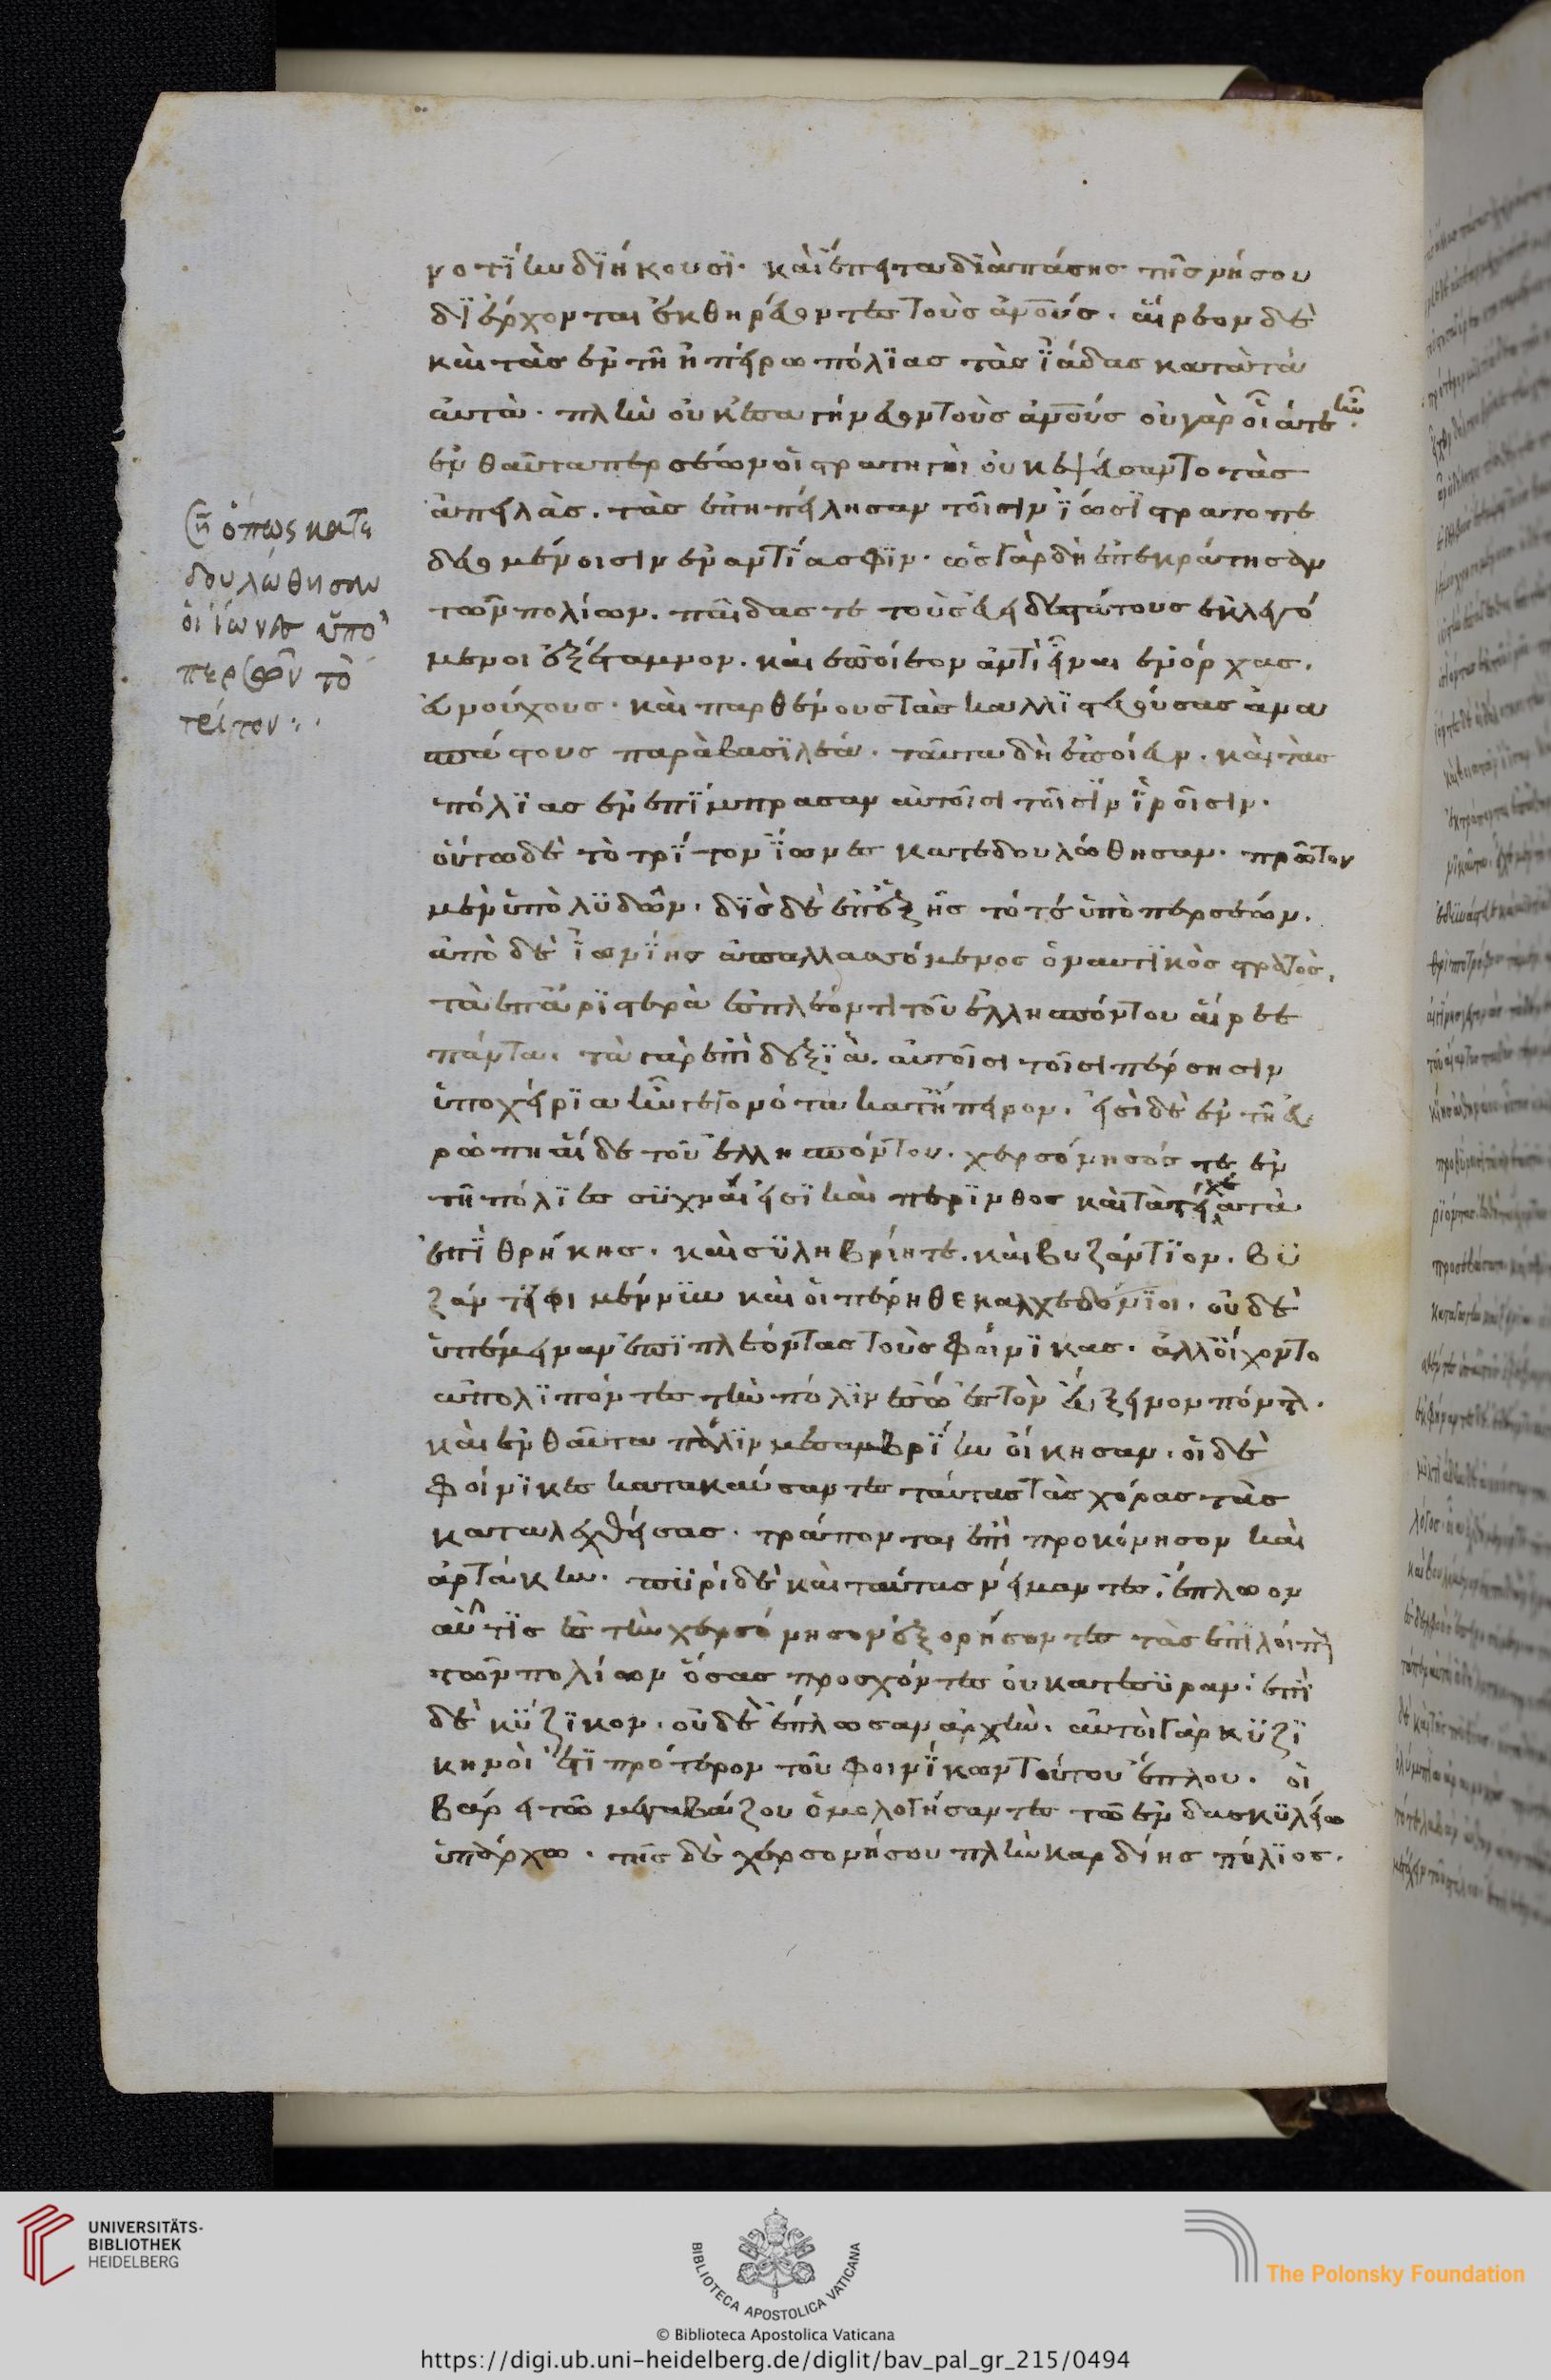 νοτίην διήκουσι. καὶ ἔπειτα διὰ πάσης τῆς νήσου
διέρχονται ἐκθηρεύοντες τοὺς ἀνοὺς. αἵρεον δὲ
καὶ τὰς ἐν τῆ ἠπείρω πόλιας τὰς ἰάδας κατὰ τὰ
αὐτὰ. πλὴν οὐκ ἐσαγήνευον τοὺς ἀνοὺς οὐ γὰρ οἷά τε ἦν.
ἐνθαῦτα περσέων οἱ στρατηγοὶ οὐκ ἐψεύσαντο τὰς
ἀπειλὰς. τὰς ἐπηπείλησαν τοῖσιν ἴωσι στρατοπε
δευομένοισιν ἐναντία σφιν. ὡς γὰρ δὴ ἐπεκράτησαν
τῶν πολίων. παῖδας τε τοὺς εὐειδεστάτους ἐκλεγό
μενοι ἐξέταμνον. καὶ ἐποίεον ἀντὶ εἶναι ἐνόρχας.
εὐνούχους. καὶ παρθένους τὰς καλλιστευούσας ἀνα
σπάστους παρὰ βασιλέα. ταῦτα δὴ ἐποίευν. καὶ τὰς
πόλιας ἐνεπίμπρασαν αὐτοῖσι τοῖσιν ἱροῖσιν.
οὕτω δὲ τὸ τρίτον ἴωνες κατεδουλώθησαν. πρῶτον
μὲν ὑπὸ λυδῶν. δὶς δὲ ἐπεξῆς τότε ὑπὸ περσέων.
ἀπὸ δὲ ἰωνίης ἀπαλλασσόμενος ὁ ναυτικὸς στρατὸς,
τὰ ἐπ' ἀριστερὰ ἐσπλέοντι τοῦ ἑλλησπόντου αἵρεε
πάντα. τὰ γὰρ ἐπὶ δεξιὰ. αὐτοῖσι τοῖσι πέρσησιν
ὑποχείρια ἦν γεγονότα κατ' ἤπειρον. εἰσὶ δὲ ἐν τῆ εὐ
ρώπη αἵδε τοῦ ἑλλησπόντου. χερσόνησός τε ἐν
τῆ πόλιες συχναὶ εἰσὶ καὶ πέρινθος καὶ τὰ τείχεα τὰ
ἐπὶ θρήκης. καὶ συληβρίη τε. καὶ βυζάντιον. βυ
ζάντιοι μέν νυν καὶ οἱ πέρηθε καλχεδόνιοι. οὐδὲ
ὑπέμειναν ἐπιπλέοντας τοὺς φοίνικας. ἀλλ' οἴχοντο
ἀπολιπόντες τὴν πόλιν ἔσω ἐς τὸν εὔξεινον πόντον.
καὶ ἐνθαῦτα πόλιν μεσαμβρίην οἴκησαν. οἱ δὲ
φοίνικες κατακαύσαντες ταύτας τὰς χώρας τὰς
καταλεχθείσας. τράπονται ἐπὶ προκόνησον καὶ
ἀρτάκην. πυρὶ δὲ καὶ ταύτας νείμαντες, ἔπλωον
αὖτις ἐς τὴν χερσόνησον ἐξαιρήσοντες τὰς ἐπιλοίπους
τῶν πολίων ὅσας προσχόντες οὐ κατέσυραν. ἐπὶ
δὲ κύζικον. οὐδὲ ἔπλωσαν ἀρχὴν. αὐτοὶ γὰρ κυζι
κηνοὶ ἔτι πρότερον τοῦ φοινίκων τούτου ἔσπλου. οἱ
βάρει τῶ μεγαβάζου ὁμολογήσαντες τῶ ἐν δασκυλείω
ὑπάρχω. τῆς δὲ χερσονήσου πλὴν καρδίης πόλιος.
ση ὅπως κατε
δουλώθησαν
οἱ ἴωνες ὑπὸ
περσῶν τὸ
τρίτον
UNIVERSITÄTS-
BIBLIOTHEK
HEIDELBERG
BIBLIOTECA APOSTOLICA VATICANA
The Polonsky Foundation
© Biblioteca Apostolica Vaticana
https://digi.ub.uni-heidelberg.de/diglit/bav_pal_gr_215/0494